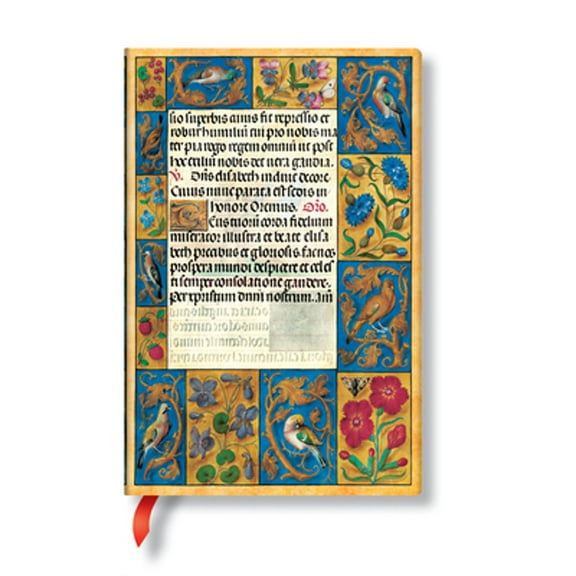 sio superbis aiuus fit repressio et
robur humiliū cui pro nobis ma
ter pia rogo regem omniū ut post
hoc exiliū nobis det uera gaudia.
V. Dn̄s elisabeth induit decore.
Cuius nunc parata est sedis in
honore Oremus. Oro.
tuorū corda fidelium
miserator illustra et beate elisa
beth precibus et gloriosis facnos
prospera mundi despicere et celes
ti semper consolatione gaudere.
Per xpristum dnm̄ nostrum. am̄